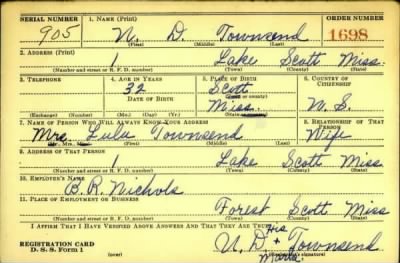 SERIAL NUMBER 1. NAME (Print) ORDER NUMBER
905 U. D. Townsend 1698
(First) (Middle) (Last)
2. ADDRESS (Print)
1 Lake Scott Miss.
(Number and street or R. F. D. number) (Town) (County) (State)
3. TELEPHONE 4. AGE IN YEARS 5. PLACE OF BIRTH 6. COUNTRY OF CITIZENSHIP
32 Scott
DATE OF BIRTH (Town or county)
Miss. U. S.
(Exchange) (Number) (Mo.) (Day) (Yr.) (State or country)
7. NAME OF PERSON WHO WILL ALWAYS KNOW YOUR ADDRESS 8. RELATIONSHIP OF THAT PERSON
Mrs. Lula Townsend Wife
(Mr., Mrs., Miss) (First) (Middle) (Last)
9. ADDRESS OF THAT PERSON
1 Lake Scott Miss
(Number and street or R. F. D. number) (Town) (County) (State)
10. EMPLOYER'S NAME
B. R. Nichols
11. PLACE OF EMPLOYMENT OR BUSINESS
Forest Scott Miss
(Number and street or R. F. D. number) (Town) (County) (State)
I AFFIRM THAT I HAVE VERIFIED ABOVE ANSWERS AND THAT THEY ARE TRUE.
His
REGISTRATION CARD U. D. + Townsend
D. S. S. Form 1 Mark